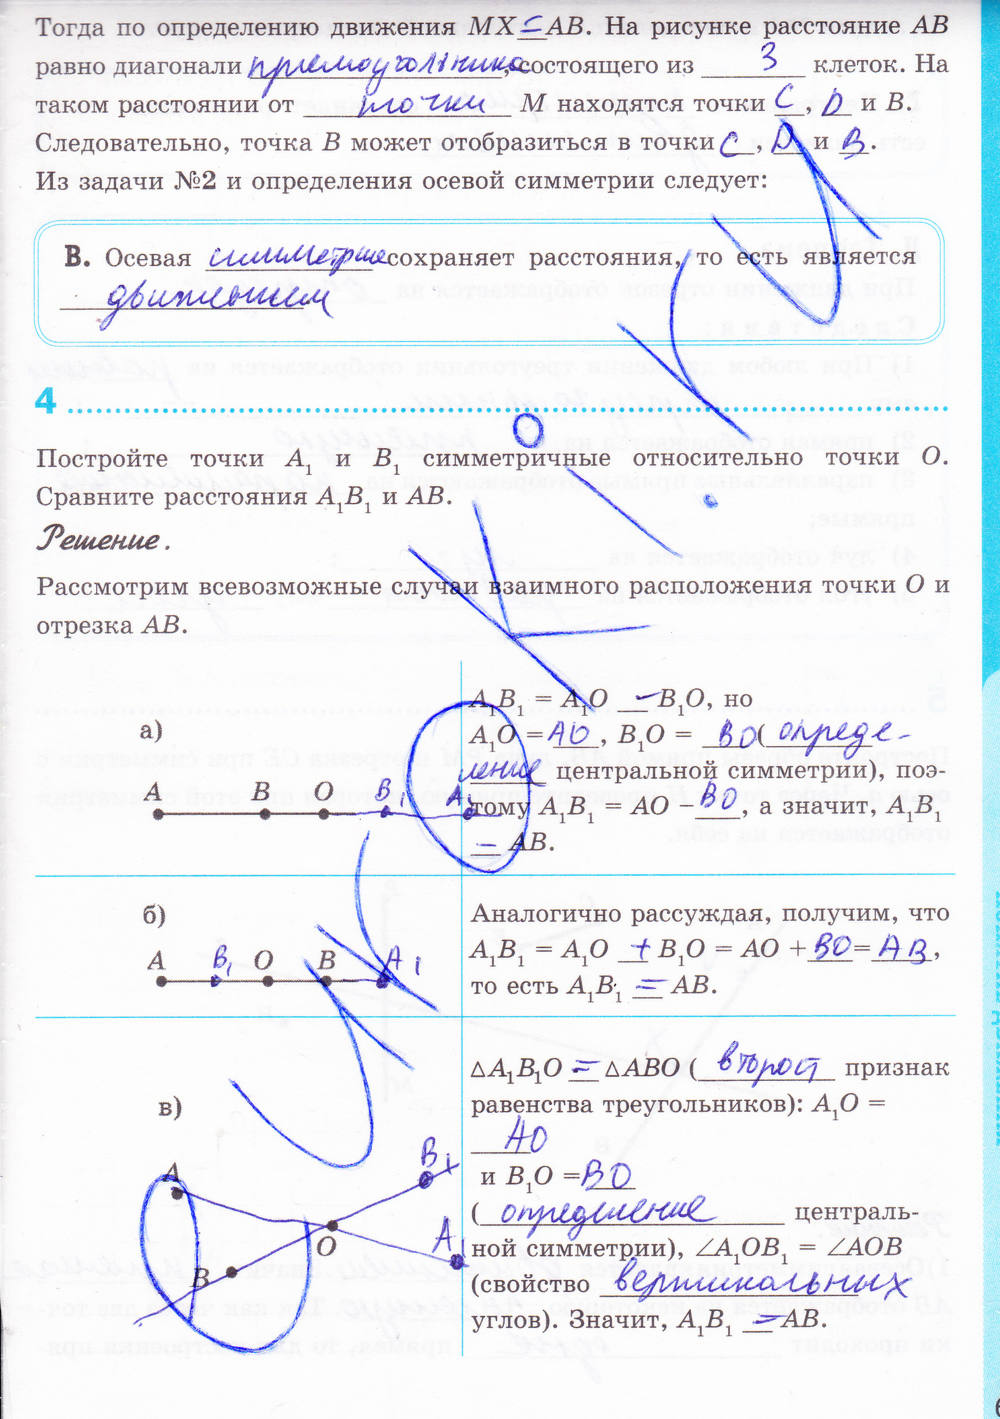 Тогда по определению движения MX = AB. На рисунке расстояние AB
равно диагонали прямоугольника, состоящего из 3 клеток. На
таком расстоянии от точки M находятся точки C, D и B.
Следовательно, точка B может отобразиться в точки C, D и B.
Из задачи №2 и определения осевой симметрии следует:
В. Осевая симметрия сохраняет расстояния, то есть является
движением
4
Постройте точки A₁ и B₁ симметричные относительно точки O.
Сравните расстояния A₁B₁ и AB.
Решение.
Рассмотрим всевозможные случаи взаимного расположения точки O и
отрезка AB.
а)
A B O B₁ A₁
A₁B₁ = A₁O − B₁O, но
A₁O = AO, B₁O = BO (опреде-
ление центральной симметрии), поэ-
тому A₁B₁ = AO − BO, а значит, A₁B₁
= AB.
б)
A B₁ O B A₁
Аналогично рассуждая, получим, что
A₁B₁ = A₁O + B₁O = AO + BO = AB,
то есть A₁B₁ = AB.
в)
A B₁
O
B A₁
△A₁B₁O = △ABO (второй признак
равенства треугольников): A₁O =
AO
и B₁O = BO
(определение централь-
ной симметрии), ∠A₁OB₁ = ∠AOB
(свойство вертикальных
углов). Значит, A₁B₁ = AB.